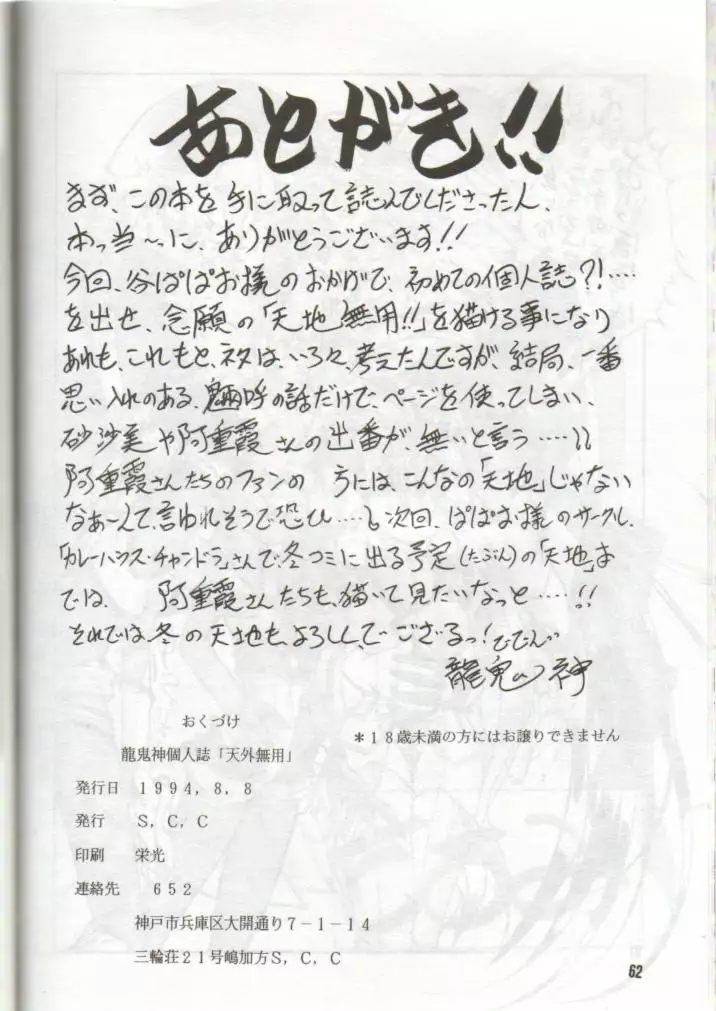 あとがき!!
まず、この本を手に取って読んでくださった人、
本っ当〜っに、ありがとうございます!!
今回、谷ぱぱお様のおかげで、初めての個人誌?!‥‥
を出せ、念願の「天地無用!!」を描ける事になり
あれも、これもと、ネタは、いろいろ、考えたんですが、結局、一番
思い入れのある、魎呼の話だけで、ページを使ってしまい、
砂沙美や阿重霞さんの出番が、無いと言う‥‥
阿重霞さんたちのファンの 方には、こんなの「天地」じゃない
なあーんて、言われそうで恐ひ‥‥。次回、ぱぱお様のサークル、
「カレーハウス・チャンドラ」さんで、冬コミに出る予定(たぶん)の「天地」本
では、 阿重霞さんたちも、描いて見たいなっと‥‥!!
それでは、冬の天地も、よろしく、で ござるっ!
龍鬼の神
おくづけ
龍鬼神個人誌「天外無用」
*18歳未満の方にはお譲りできません
発行日 1994,8,8
発行 S,C,C
印刷 栄光
連絡先 652
神戸市兵庫区大開通り7-1-14
三輪荘21号嶋加方S,C,C
62